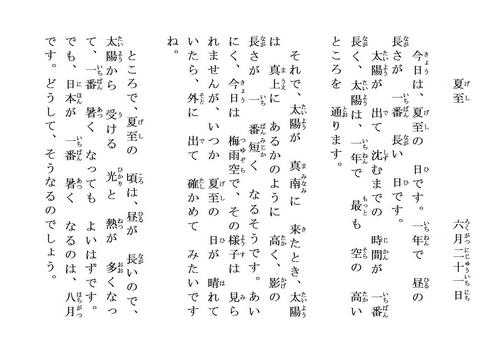 夏至　六月二十一日
今日は、夏至の　日です。一年で　昼の
長さが　一番　長い　日です。
太陽が　出て　沈むまでの　時間が　一番
長く、太陽は、一年で　最も　空の　高い
ところを　通ります。
それで、太陽が　真南に　来たとき、太陽
は　真上に　あるかのように　高く、影の
長さが　一番短く　なるそうです。あい
にく、今日は　梅雨空で、その様子は　見ら
れませんが、いつか　夏至の　日が　晴れて
いたら、外に　出て　確かめて　みたいです
ね。
ところで、夏至の　頃は、昼が　長いので、
太陽から　受ける　光と　熱が　多くなっ
て、一番　暑く　なっても　よいはずです。
でも、日本が　一番　暑く　なるのは、八月
です。どうして、そうなるのでしょう。